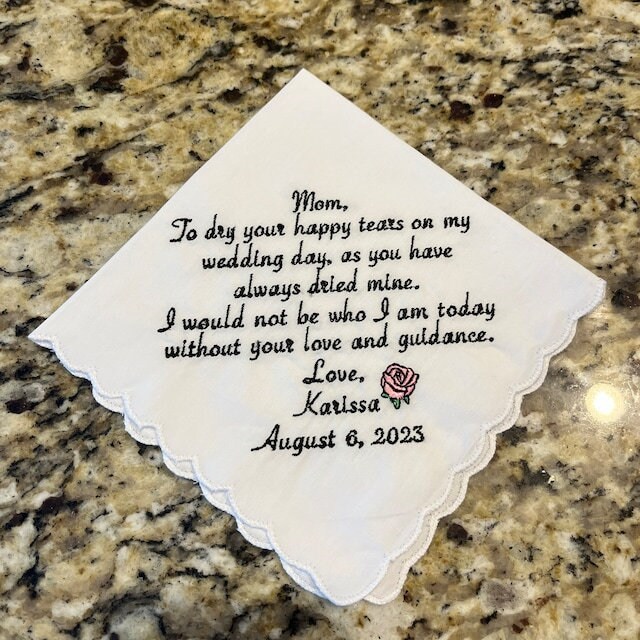 Mom,
To dry your happy tears on my
wedding day, as you have
always dried mine.
I would not be who I am today
without your love and guidance.
Love,
Karissa
August 6, 2023